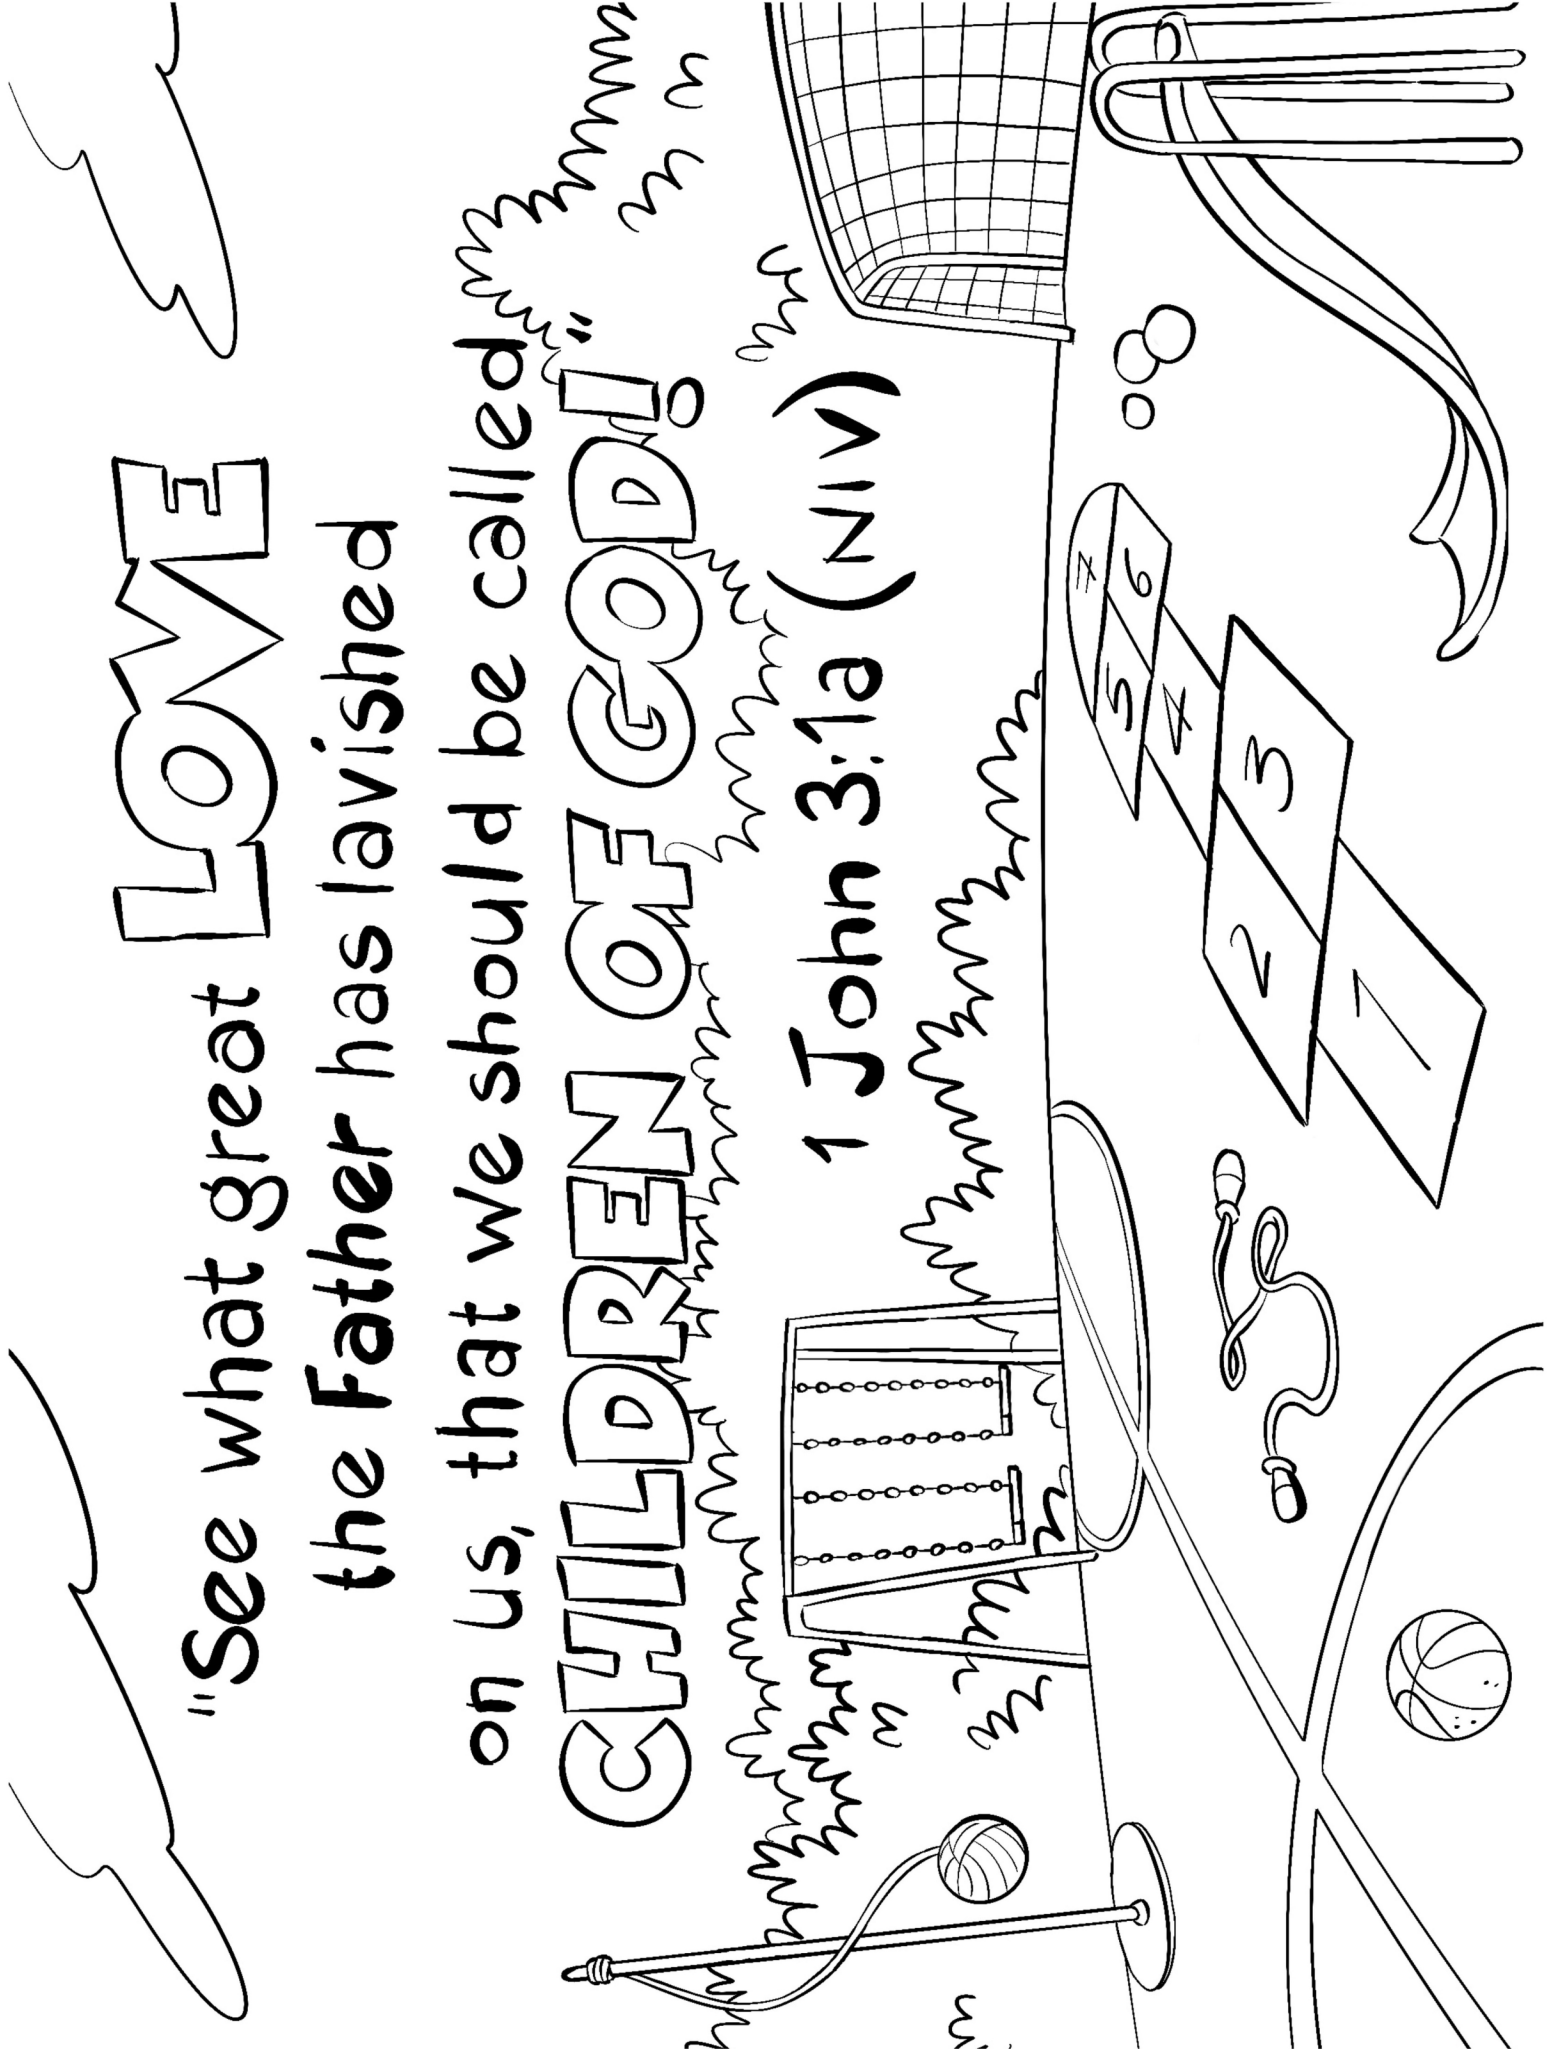 "See what great LOVE
the Father has lavished
on us, that we should be called
CHILDREN OF GOD!"
1 John 3:1a (NIV)
7
5 6
4
2 3
1